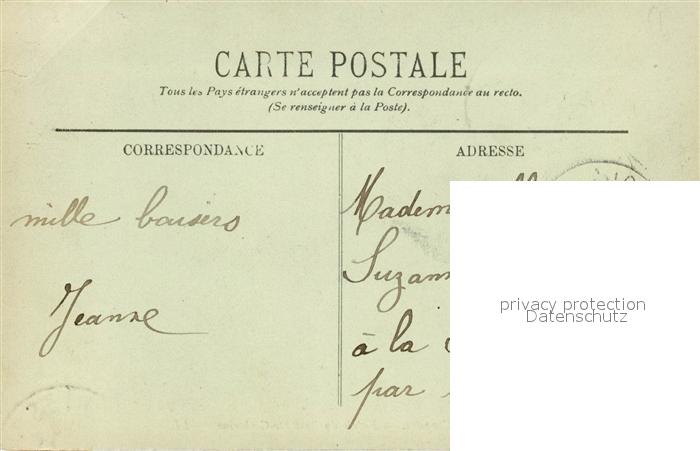 CARTE POSTALE
Tous les Pays étrangers n'acceptent pas la Correspondance au recto.
(Se renseigner à la Poste).
CORRESPONDANCE
ADRESSE
mille baisers
Jeanne
Madem
Suzann
à la
par
privacy protection
Datenschutz